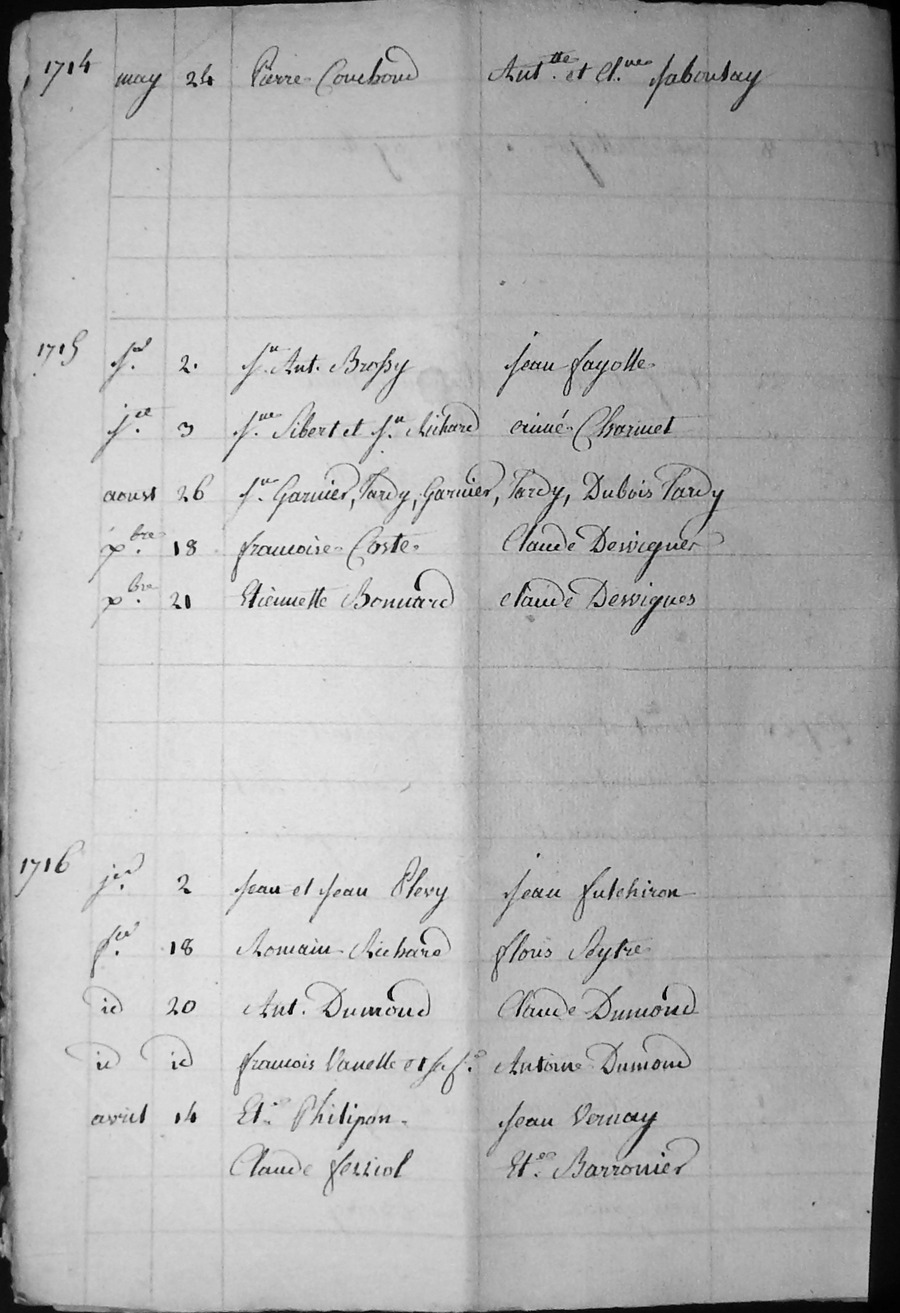 1714 may 24 Pierre Couchoud Ant.tte et Cl.ne Jaboulay
1715 2. Sr Ant. Brossy Jean fayolle
3 Sibert et Sr Richard aimé Charmet
aoust 26 Garnier, Tardy, Garnier, Tardy, Dubois Tardy
xbre 18 francoise Coste Claude Desvignes
xbre 21 Etiennette Bonnard Claude Desvignes
1716 jer 2 Jean et Jean Plevy Jean futchiron
18 Romain Richard floris Peytre
id 20 Ant. Dumond Claude Dumond
id id francois Vanelle et sa f.e Antoine Dumond
avril 14 Et.e Philipon Jean Vernay
Claude ferriol Et.e Barronier